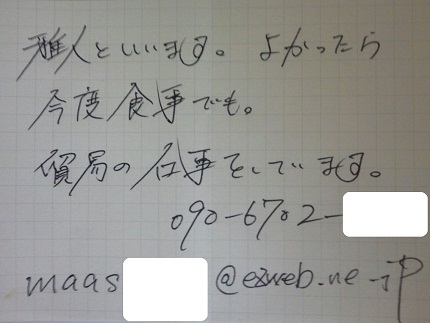 雅人といいます。よかったら
今度食事でも。
貿易の仕事をしています。
090-6702-
maas @ezweb.ne.jp